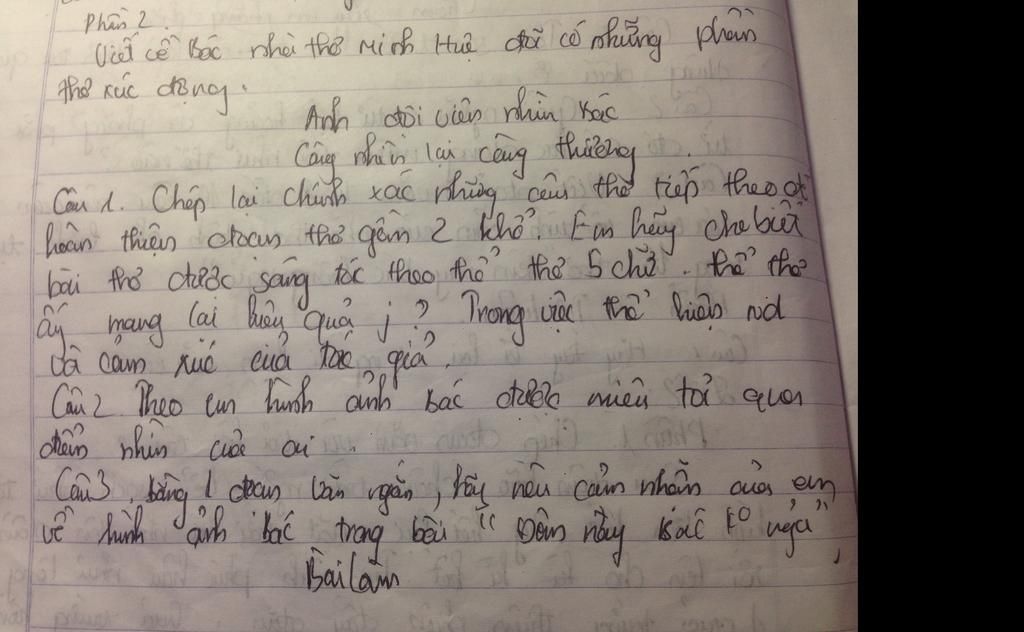 Phần 2
Viết về Bác nhà thơ Minh Huệ đã có những phần
thơ xúc động.
Anh đội viên nhìn Bác
Càng nhìn lại càng thương.
Câu 1. Chép lại chính xác những câu thơ tiếp theo để
hoàn thiện đoạn thơ gồm 2 khổ. Em hãy cho biết
bài thơ được sáng tác theo thể thơ 5 chữ. thể thơ
ấy mang lại hiệu quả j? Trong việc thể hiện nd
và cảm xúc của tác giả.
Câu 2. Theo em hình ảnh Bác được miêu tả qua
điểm nhìn của ai.
Câu 3, bằng 1 đoạn văn ngắn, hãy nêu cảm nhận của em
về hình ảnh Bác trong bài "Đêm nay Bác ko ngủ",
Bài làm